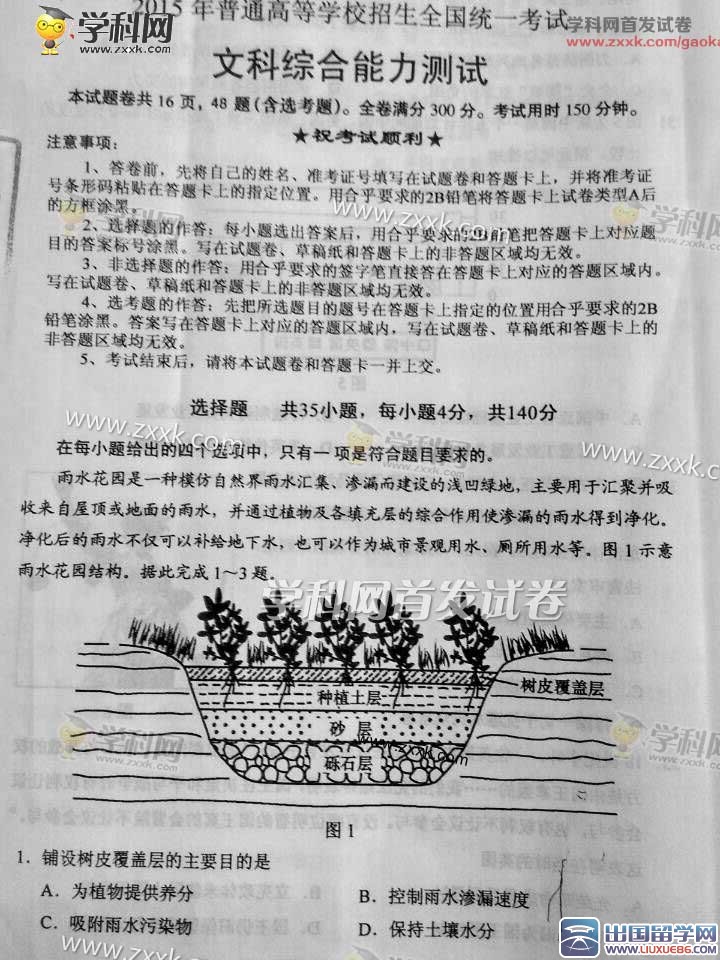 2015年普通高等学校招生全国统一考试
学科网首发试卷
www.zxxk.com/gaoka
学科网
www.zxxk.com
文科综合能力测试
本试题卷共16页，48题(含选考题)。全卷满分300分。考试用时150分钟。
★祝考试顺利★
注意事项：
1、答卷前，先将自己的姓名、准考证号填写在试题卷和答题卡上，并将准考证
号条形码粘贴在答题卡上的指定位置。用合乎要求的2B铅笔将答题卡上试卷类型A后
的方框涂黑。
2、选择题的作答：每小题选出答案后，用合乎要求的2B铅笔把答题卡上对应题
目的答案标号涂黑。写在试题卷、草稿纸和答题卡上的非答题区域均无效。
3、非选择题的作答：用合乎要求的签字笔直接答在答题卡上对应的答题区域内。
写在试题卷、草稿纸和答题卡上的非答题区域均无效。
4、选考题的作答：先把所选题目的题号在答题卡上指定的位置用合乎要求的2B
铅笔涂黑。答案写在答题卡上对应的答题区域内，写在试题卷、草稿纸和答题卡上的
非答题区域均无效。
5、考试结束后，请将本试题卷和答题卡一并上交。
选择题 共35小题，每小题4分，共140分
在每小题给出的四个选项中，只有一项是符合题目要求的。
雨水花园是一种模仿自然界雨水汇集、渗漏而建设的浅凹绿地，主要用于汇聚并吸
收来自屋顶或地面的雨水，并通过植物及各填充层的综合作用使渗漏的雨水得到净化。
净化后的雨水不仅可以补给地下水，也可以作为城市景观用水、厕所用水等。图1示意
雨水花园结构。据此完成1～3题。
学科网首发试卷
树皮覆盖层
种植土层
砂 层
砾石层
www.zxxk.com
图1
1．铺设树皮覆盖层的主要目的是
A．为植物提供养分 B．控制雨水渗漏速度
C．吸附雨水污染物 D．保持土壤水分
出国留学网
www.liuxue86.com